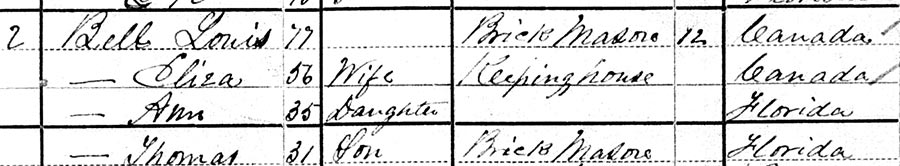 2 Bell Louis 77 Brick Mason 12 Canada
— Eliza 56 Wife Keeping house Canada
— Ann 35 Daughter Florida
— Thomas 31 Son Brick Mason Florida